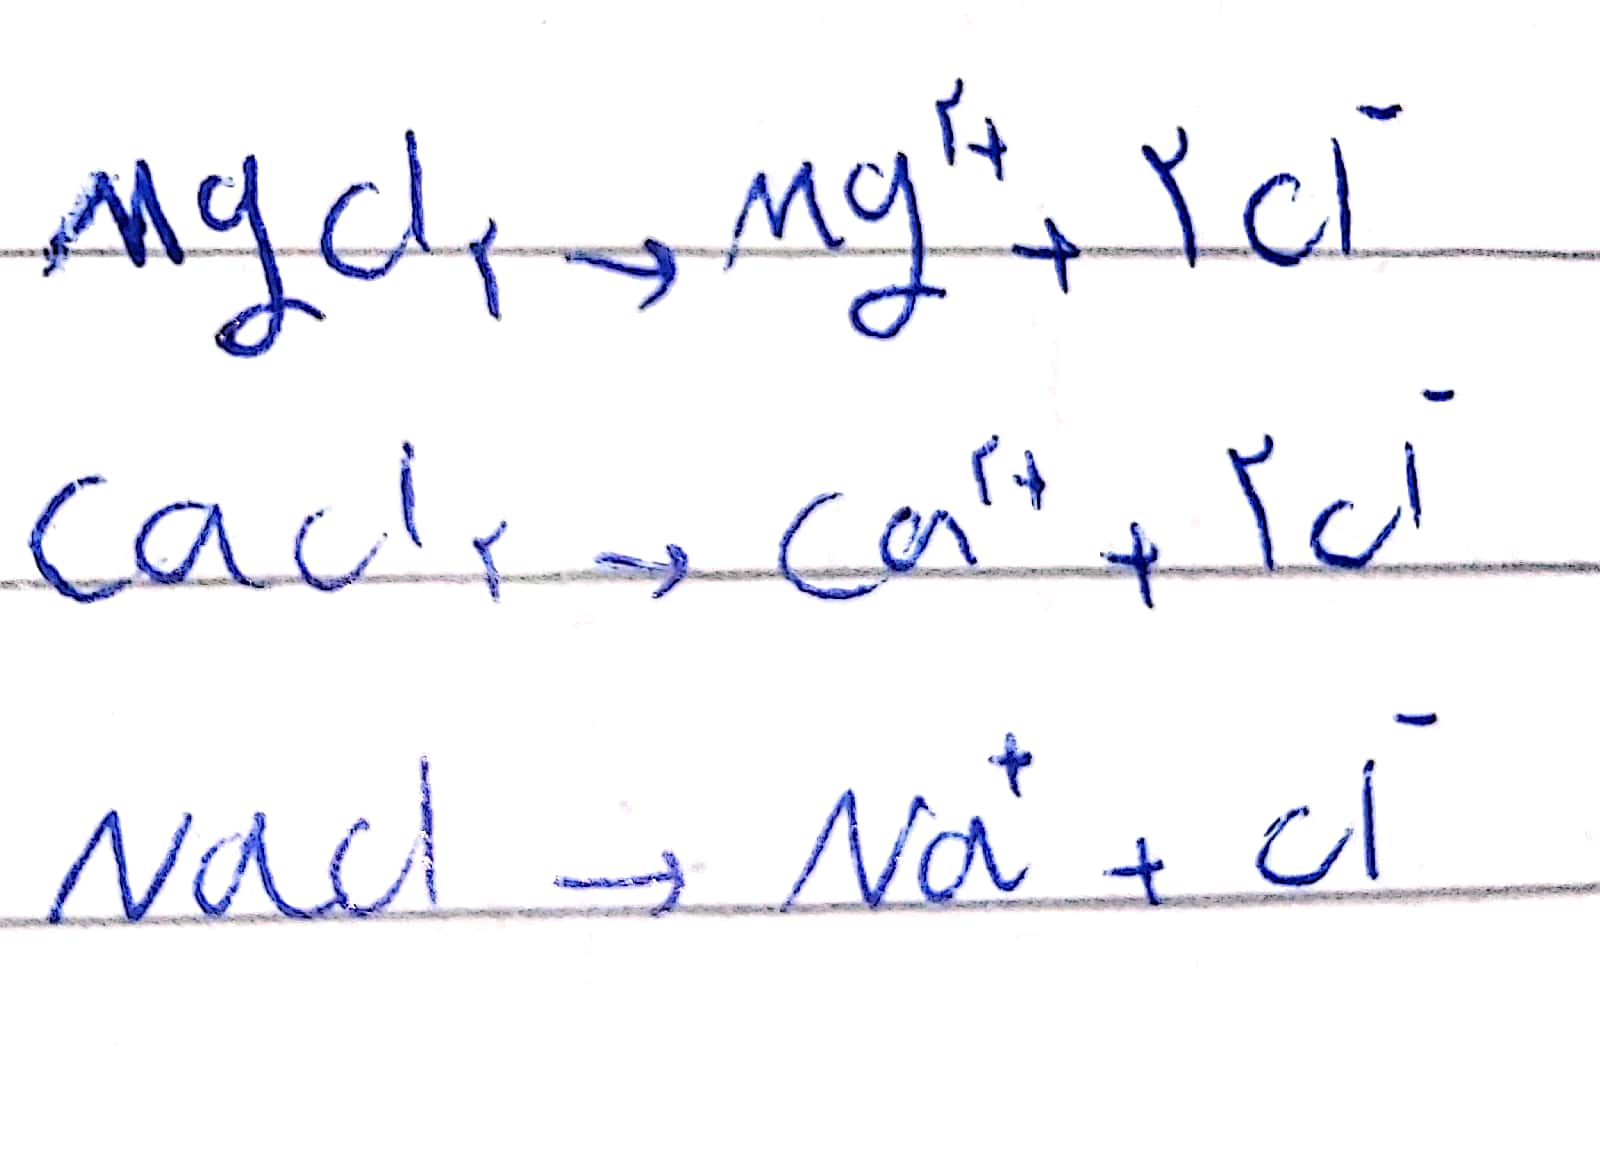 Mgcl₂ → Mg²⁺ + ۲cl⁻
cacl₂ → ca²⁺ + ۲cl⁻
Nacl → Na⁺ + cl⁻